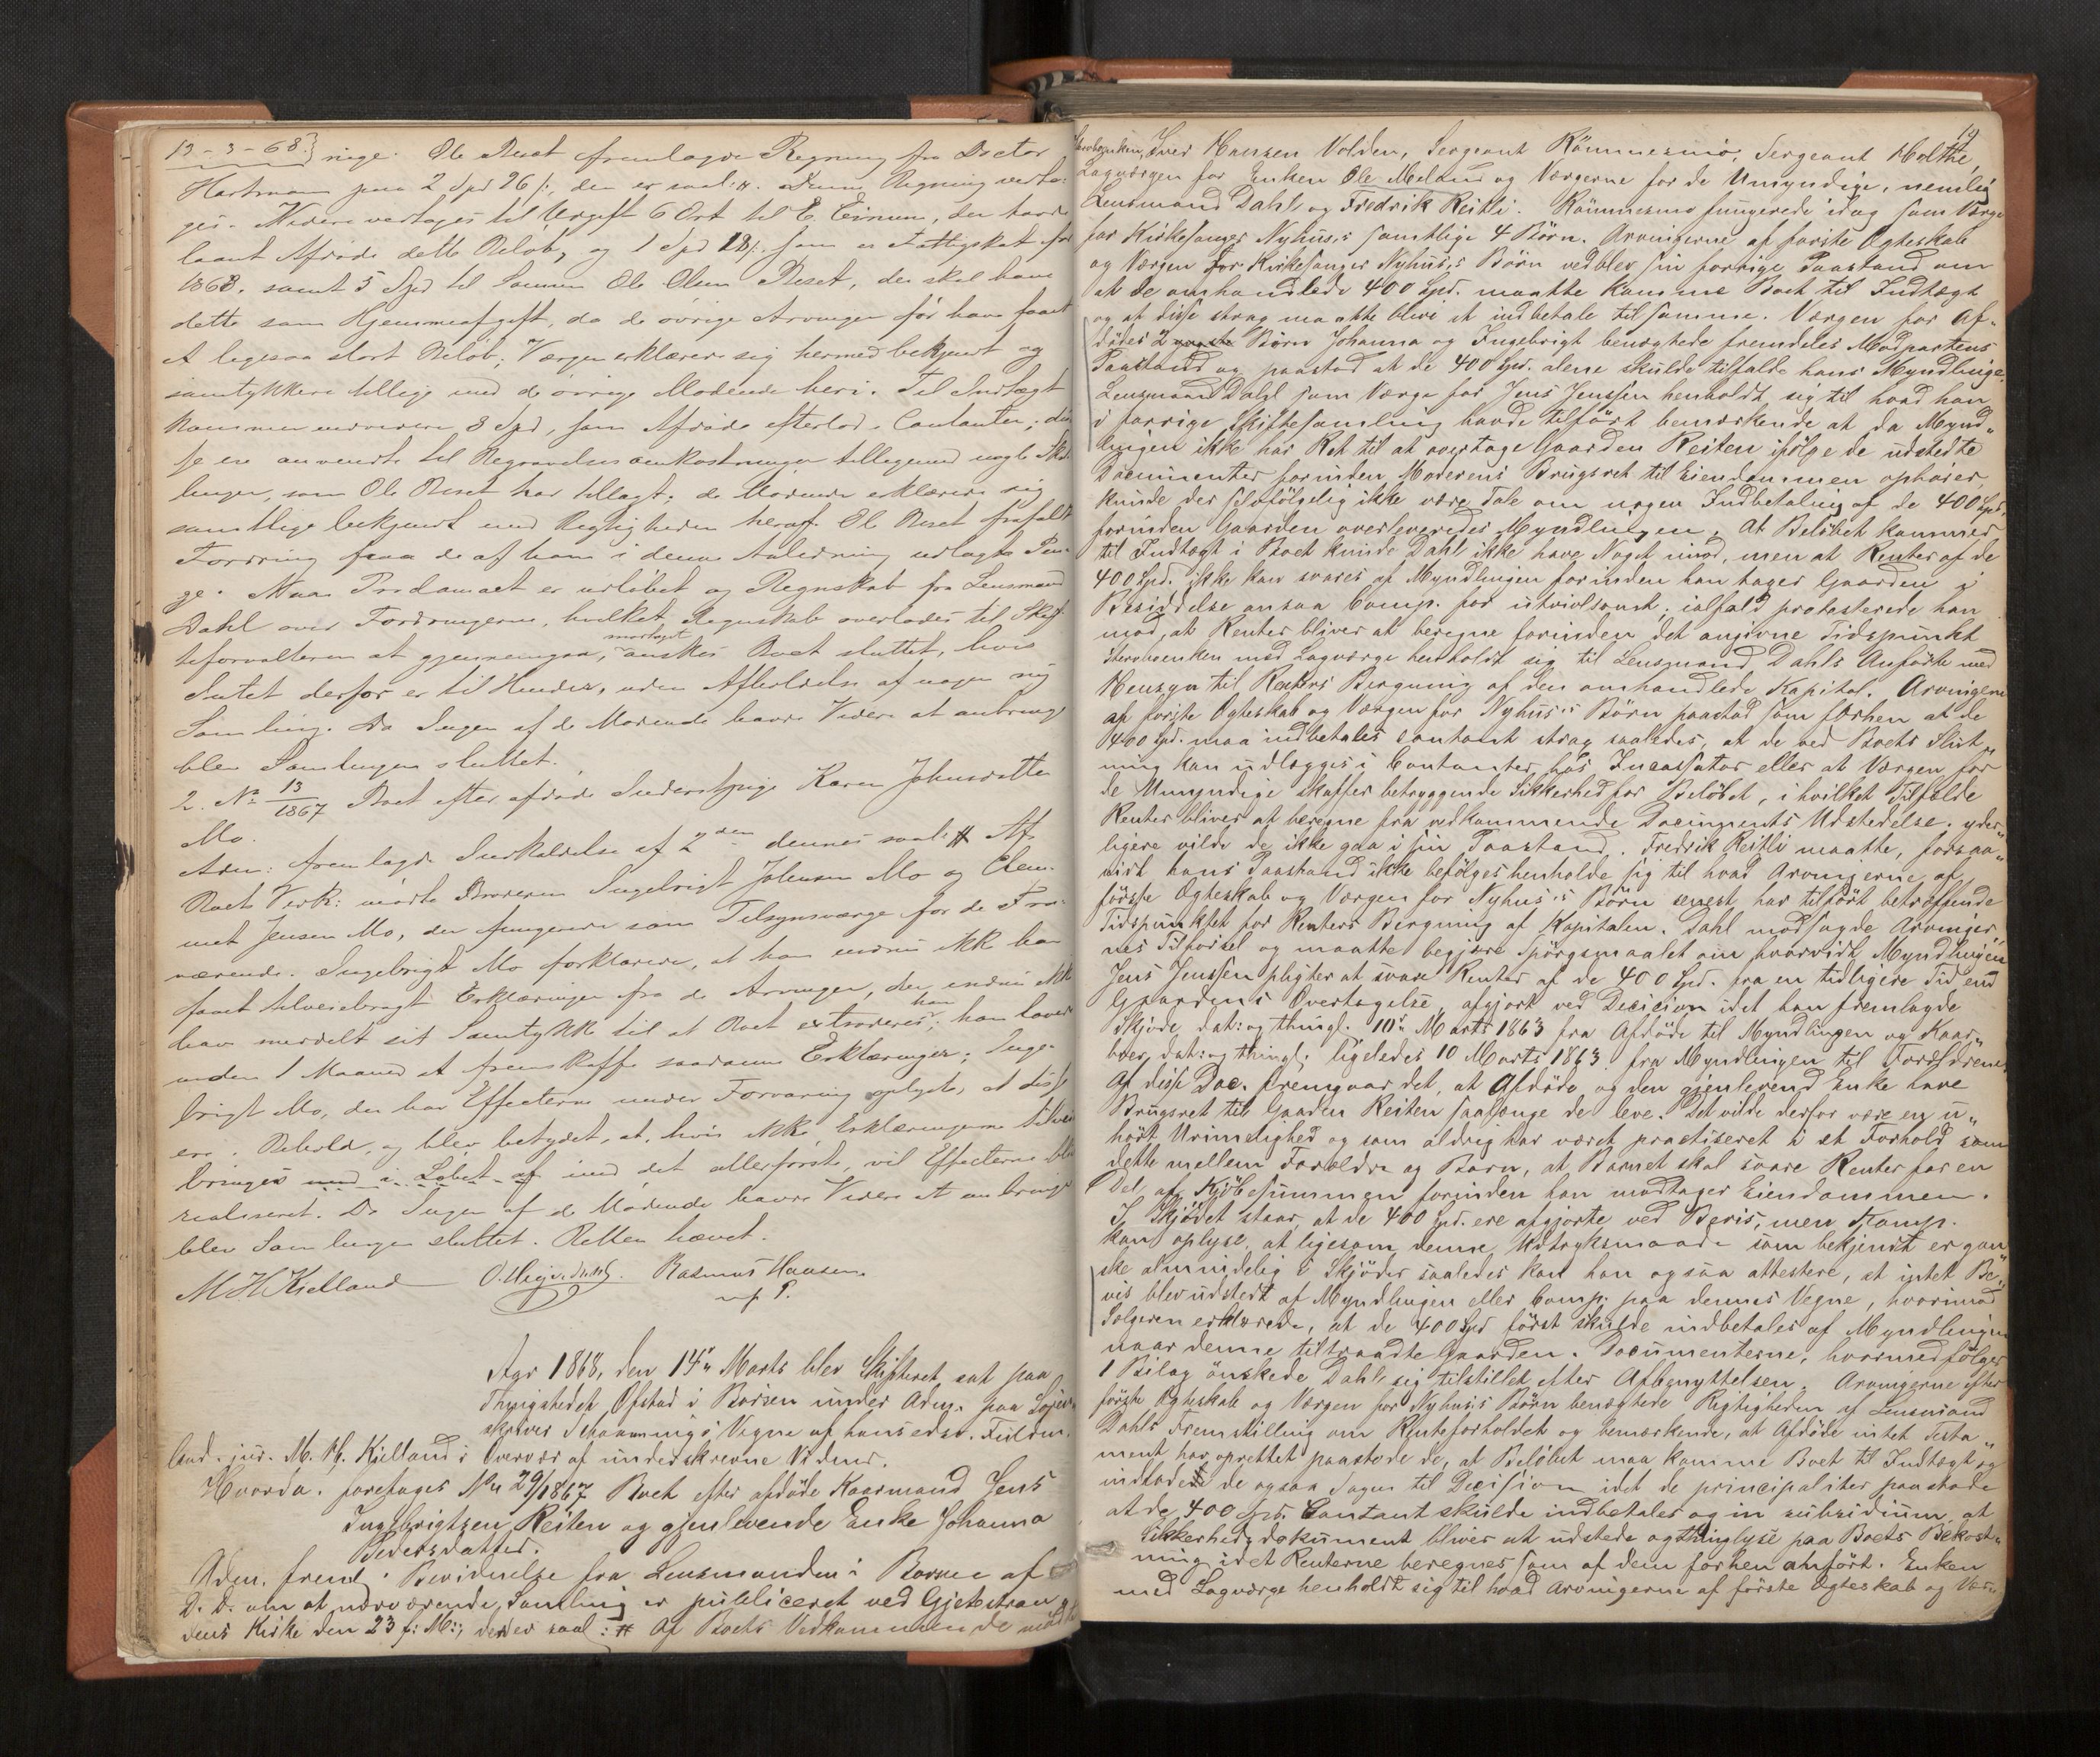 13-3-68.} nige. Ole Reset fremlagde Regning fra Doctor
Hartmann paa 2 Spd 96 ß., der er saal: #. Denne Regning vedto-
ges. Videre vedtages til Udgift 6 Ort til E. Eimun, der havde
laant Afdøde dette Beløb, og 1 Spd 18 ß. som er Fattigskat for
1868. samt 5 Spd til Sønnen Ole Olsen Reset, der skal have
dette som Hjemmeafgift, da de øvrige Arvinger før have faaet
et ligesaa stort Beløb; Værgen erklærer sig hermed bekjendt og
samtykkere tillige med de øvrige Mødende heri. Til Indtægt
kommer endvidere 3 Spd, som Afdøde efterlod i Contanter; dis-
se ere anvendte til Begravelsesomkostninger tilligemed nogle Skil-
linger, som Ole Reset har tillagt; de Mødende erklærede sig
samtlige bekjendt med Rigtigheden heraf. Ole Reset frafaldt
Fordring paa de af ham i denne Anledning udlagte Pen-
ge. Naar Proclamaet er udløbet og Regnskab fra Lensmand
Dahl over Fordringerne, hvilket Regnskab overlodes til Skif-
teforvalteren at gjennemgaa, modtaget ønskes Boet sluttet, hvis
Intet derfor er til Hinder, uden Afholdelse af nogen ny
Samling. Da Ingen af de Mødende havde Videre at anbringe
blev Samlingen sluttet.
2. No 13/1867 Boet efter afdøde Inderstpige Karen Johnsdatter
Mo.
Adm: fremlagde Indkaldelse af 2den dennes saal: # Af
Boet Vedk: mødte Broderen Ingebrigt Johnsen Mo og Clem-
met Jensen Mo, der fungerer som Tilsynsværge for de Fra-
værende. Ingebrigt Mo forklarede, at han endnu ikke har
faaet tilveiebragt Erklæringer fra de Arvinger, der endnu ikke
have meddelt sit Samtykke til at Boet extraderes ham; han lovede
inden 1 Maaned at fremskaffe saadanne Erklæringer; Inge-
brigt Mo, der har Effecterne under Forvaring oplyste, at disse
ere i Behold, og blev betydet, at, hvis ikke Erklæringerne tilveie-
bringes med i Løbet af med det allerførste, vil Effecterne blive
realiseret. Da Ingen af de Mødende havde Videre at anbringe
blev Samlingen sluttet. Retten hævet.
M H Kielland Rasmus Hansen
m. f. P.
Aar 1868, den 14de Marts blev Skifteret sat paa
Thingstedet Ofstad i Børsen under Adm. paa Soren-
skriver Schanmings Vegne af hans edsv. Fuldm.
Cand. jur. M. H. Kielland i Overvær af underskrevne Vidner.
Hvorda: foretages No 29/1867 Boet efter afdøde Kaarmand Jens
Ingebrigtsen Reiten og gjenlevende Enke Johanna
Pedersdatter.
Adm. freml. Bevidnelse fra Lensmanden i Børsen af
D. D. om at nærværende Samling er publiceret ved Gjetestran-
dens Kirke den 23 f: M:, der er saal: # Af Boets Vedkommende mødte
19
Sterboenken, Iver Hansen Volden, Sergeant Rømmesmo, Sergeant Holthe,
Lagværgen for Enken Ole Meland og Værgerne for de Umyndige, nemlig
Lensmand Dahl og Fredrik Reitli. Rømmesmo fungerede idag som Værge
for Kirkesanger Nyhus's samtlige 4 Børn. Arvingerne af første Ægteskab
og Værgen for Kirkesanger Nyhus's Børn vedblev sin forrige Paastand om
at de omhandlede 400 Spd. maatte komme Boet til Indtægt
og at disse strax maatte blive at indbetale til samme. Værgen for Af-
dødes 2 yngste Børn Johanna og Ingebrigt benægtede fremdeles Modpartens
Paastand og paastod at de 400 Spd. alene skulde tilfalde hans Myndlinge.
Lensmand Dahl som Værge for Jens Jenssen henholdt sig til hvad han
i forrige Skiftesamling havde tilført bemærkende at da Mynd-
lingen ikke har Ret til at overtage Gaarden Reiten ifølge de udstedte
Documenter forinden Moderens Brugsret til Eiendommen ophører,
kunde der selvfølgelig ikke være Tale om nogen Indbetaling af de 400 Spd.
forinden Gaarden overleveredes Myndlingen. At Beløbet kommer
til Indtægt i Boet kunde Dahl ikke have Noget imod, men at Renter af de
400 Spd. ikke kan svares af Myndlingen forinden han tager Gaarden i
Besiddelse ansaa Comp. for utvivlsomt; ialfald protesterede han
mod, at Renter bliver at beregne forinden det angivne Tidspunkt
Sterboenken med Lagværge henholdt sig til Lensmand Dahls Anførte med
Hensyn til Renters Beregning af den omhandlede Kapital. Arvingerne
af første Ægteskab og Værgen for Nyhus's Børn paastod som forhen at de
400 Spd. maa indbetales contant strax saaledes, at de ved Boets Slut-
ning kan udlægges i Contanter hos Incassator eller at Værgen for
de Umyndige skaffer betryggende Sikkerhed for Beløbet, i hvilket Tilfælde
Renter bliver at beregne fra vedkommende Documents Udstedelse. yder-
ligere vilde de ikke gaa i sin Paastand. Fredrik Reitli maatte, forsaa-
vidt hans Paastand ikke befølges henholde sig til hvad Arvingerne af
første Ægteskab og Værgen for Nyhus's Børn senest har tilført betræffende
Tidspunktet for Renters Beregning af Kapitalen. Dahl modsagde Arvinger-
nes Tilførsel og maatte begjære Spørgsmaalet om hvorvidt Myndlingen
Jens Jenssen pligter at svare Renter af de 400 Spd. fra en tidligere Tid end
Gaardens Overtagelse, afgjort ved Decision idet han fremlagde
Skjøde, dat: og thingl. 10de Marts 1863 fra Afdøde til Myndlingen og Kaar-
brev, dat: og thingl. ligeledes 10 Marts 1863 fra Myndlingen til Forældrene,
Af disse Doc. fremgaar det, at Afdøde og den gjenlevend Enke have
Brugsret til Gaarden Reiten saalænge de leve. Det vilde derfor være en u-
hørt Urimelighed og som aldrig har været practiseret i et Forhold som
dette mellem Forældre og Barn, at Barnet skal svare Renter for en
Del af Kjøbesummen forinden han modtager Eiendommen.
I Skjødet staar, at de 400 Spd. ere afgjorte ved Beviis, men Komp.
kan oplyse, at ligesom denne Udtryksmaade som bekjendt er gan-
ske almindelig i Skjøder saaledes kan han ogsaa attestere, at intet Be-
vis blev udstedt af Myndlingen eller Comp. paa dennes Vegne, hvorimod
Sælgeren erklærede, at de 400 Spd først skulde indbetales af Myndlingen
naar denne tiltraadte Gaarden. Documenterne, hvormed følger
1 Bilag ønskede Dahl sig tilstillet efter Afbenyttelsen. Arvingerne efter
første Ægteskab og Værgen for Nyhus's Børn benægtede Rigtigheden af Lensmand
Dahls Fremstilling om Renteforholdet og bemærkende, at Afdøde intet Testa-
ment har oprettet paastode de, at Beløbet maa komme Boet til Indtægt og
indlode de ogsaa Sagen til Decision idet de principaliter paastode
at de 400 Spd. Contant skulde indbetales og in subsidium, at
Sikkerhedsdokument bliver at udstede og thinglyse paa Boets Bekost-
ning idet Renterne beregnes som af dem forhen anført. Enken
med Lagværge henholdt sig til hvad Arvingerne af første Ægteskab og Vær-